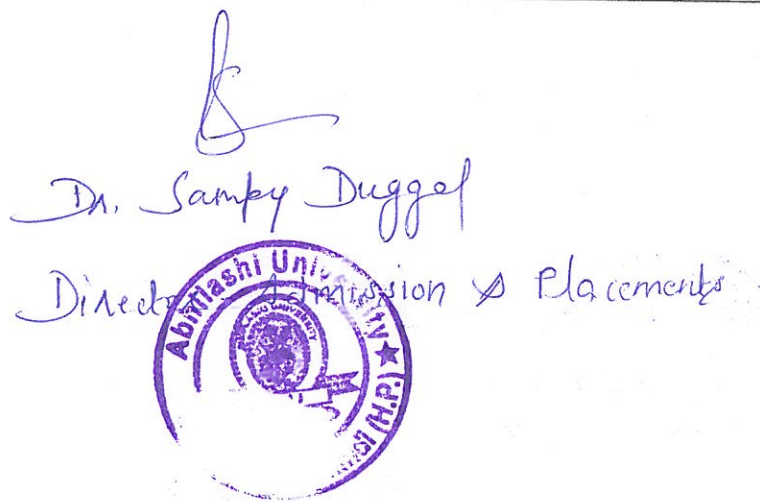 Dr. Sampy Duggal
Director Admission & Placements
Abhilashi University
(H.P.)
UNIVERSITY